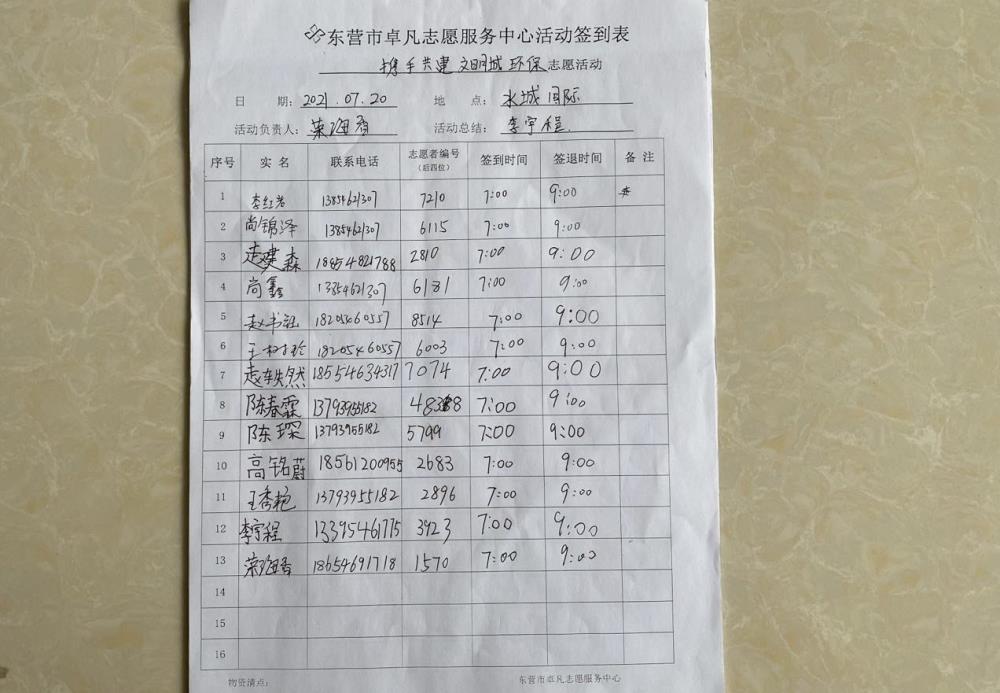 东营市卓凡志愿服务中心活动签到表
携手共建文明城环保志愿活动
日 期：2021.07.20 地 点：水城国际
活动负责人：荣海香 活动总结：李宇程
序号 实名 联系电话 志愿者编号（后四位） 签到时间 签退时间 备注
1 7210 7:00 9:00
2 尚锦泽 6115 7:00 9:00
3 赵建森 18654821788 2810 7:00 9:00
4 尚鑫 13854621307 6181 7:00 9:00
5 赵书钰 18205460557 8514 7:00 9:00
6 18205460557 6003 7:00 9:00
7 赵轶然 18554634317 7074 7:00 9:00
8 陈春霖 13793955182 7:00 9:00
9 陈琛 13793955182 5799 7:00 9:00
10 高铭蔚 18561200955 2683 7:00 9:00
11 王秀艳 13793955182 2896 7:00 9:00
12 李宇程 13395461775 3923 7:00 9:00
13 荣海香 18654691718 1570 7:00 9:00
14
15
16
物资清点： 东营市卓凡志愿服务中心